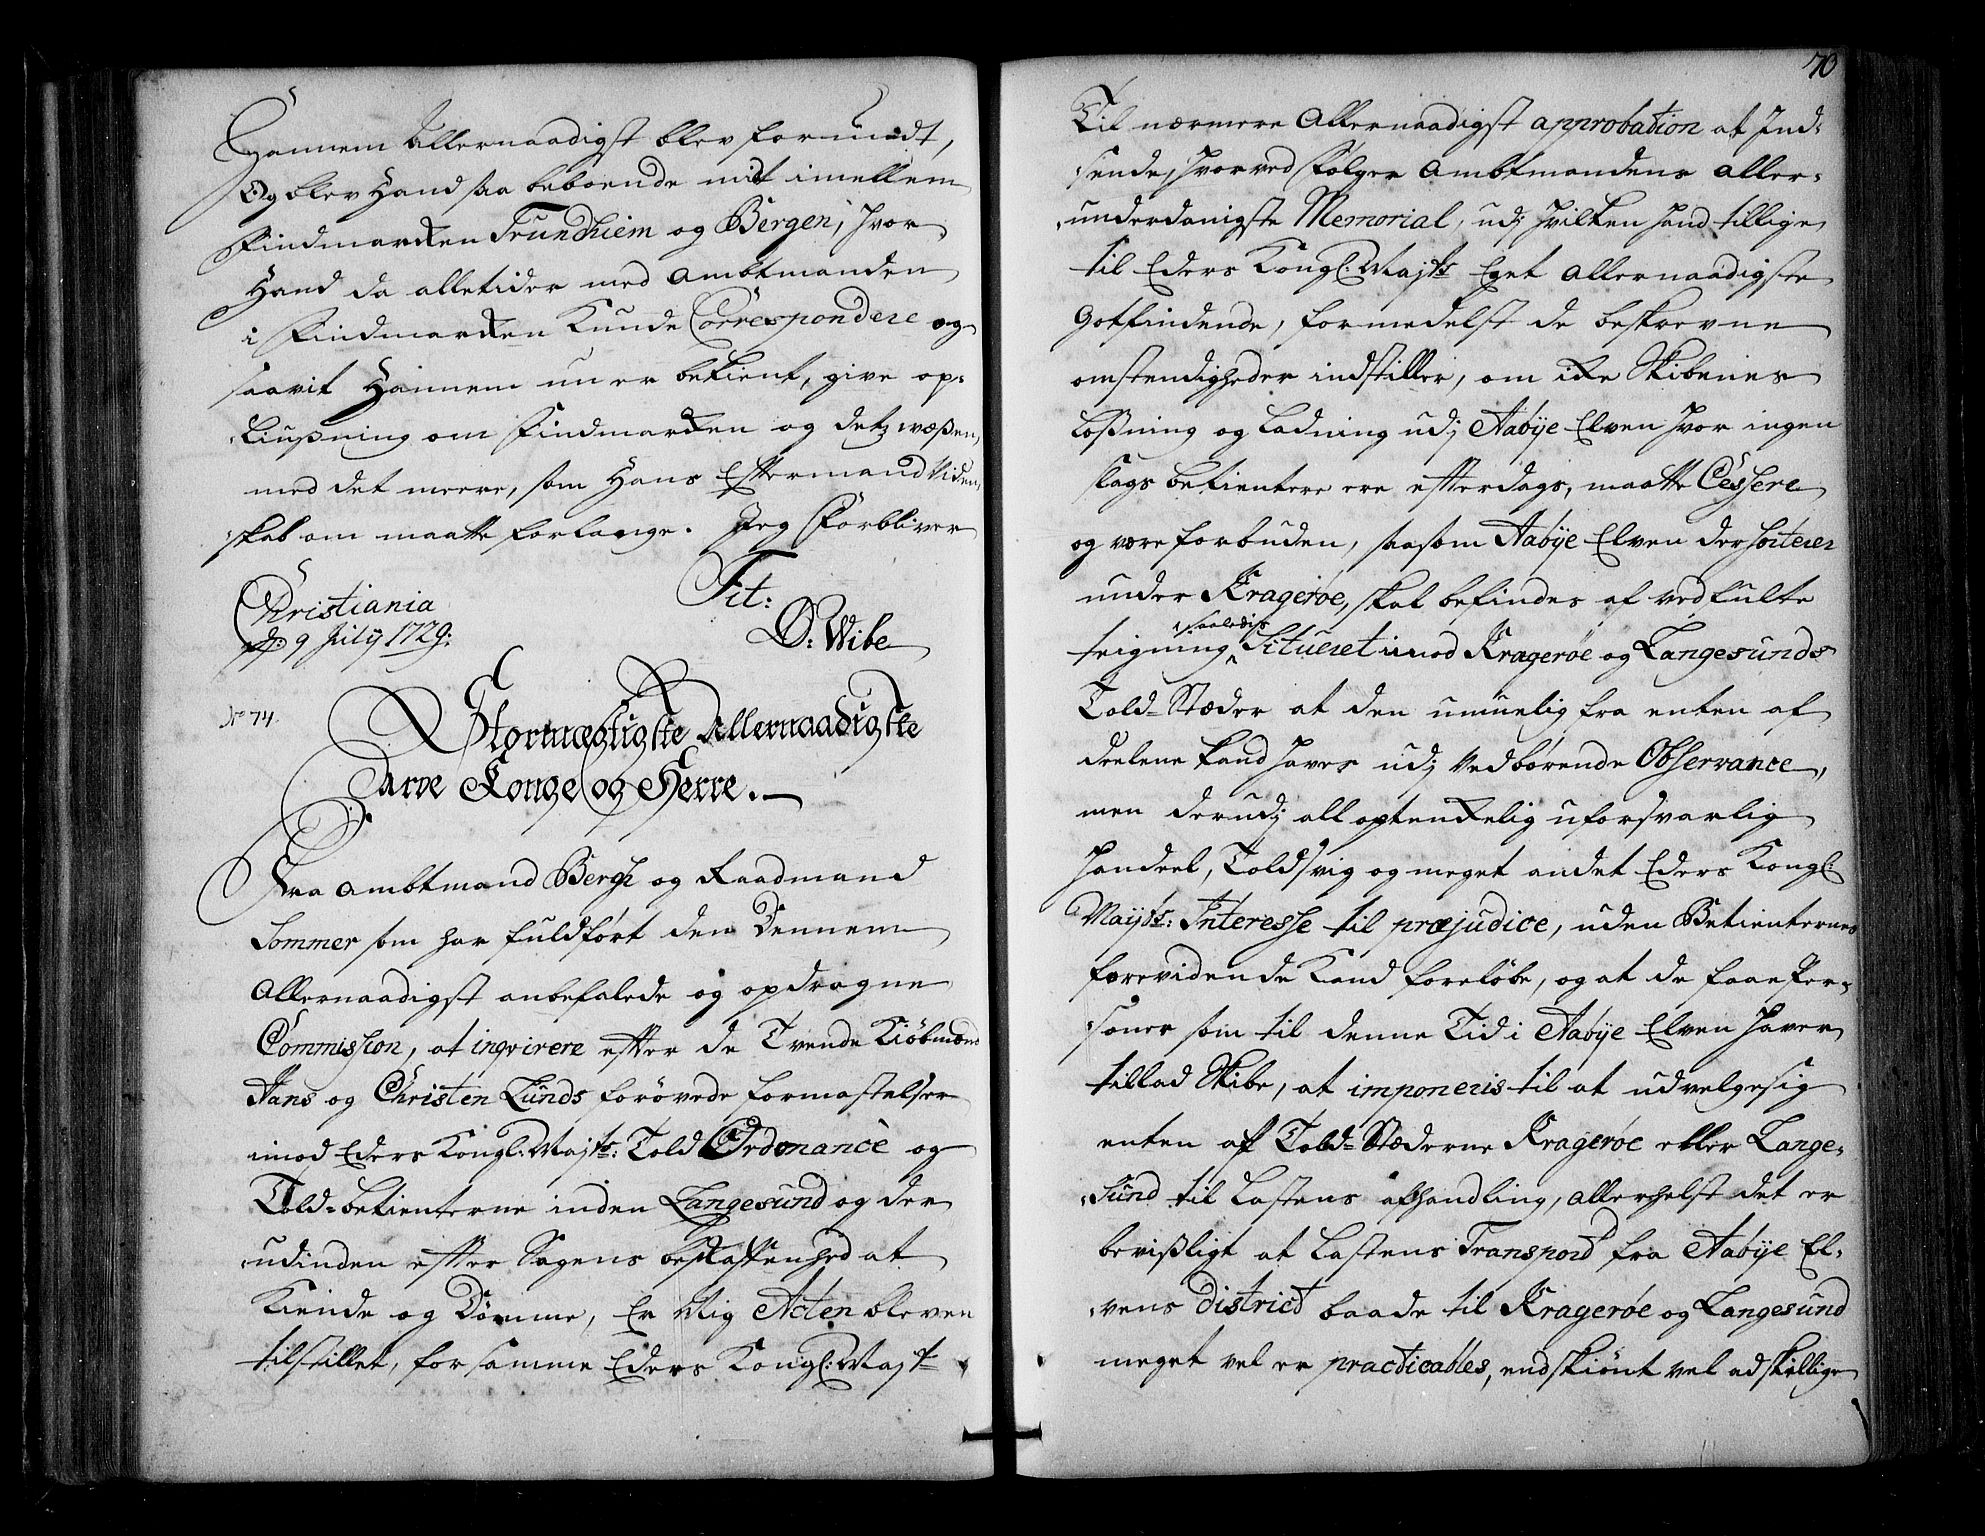 Hannem Allernaadigst blev forundt,
Og blev Hand saa beboende mit imellem
Findmarken Trundhiem og Bergen, hvor
Hand da alletider med Ambtmanden
i Findmarken Kunde Correspondere og
saavit Hannem nu er bekient, give op-
liußning om Findmarken og detz wæßen,
med det meere, som Hans Eftermand Viden-
skab om maatte forlange. Jeg Forbliver
Christiania
d: 9 July 1729:
Tit:
D: Wibe
No 74.
Stormægtigste Allernaadigste
Arve Konge og Herre.
Fra Ambtmand Bergh og Raadmand
Sommer som har fuldført den Dennem
Allernaadigst anbefalede og opdragne
Commission, at inqvirere efter de Tvende Kiøbmænd
Hans og Christen Lunds forøvede formastelser
imod Eders Kongl: Majts: Told Ordonance og
Told-betienterne inden Langesund og der
udinden efter Sagens beskaffenhed at
Kiende og Dømme, Er Mig Acten bleven
tilstillet, for samme Eders Kongl: Majt
70
Til nærmere Allernaadigst approbation at Ind-
sende, hvorved følger Ambtmandens aller-
underdanigste Memorial, udj hvilken hand tillige
til Eders Kongl: Majts Eget Allernaadigste
Gotfindende, formedelst de beskrevne
omstendigheder indstiller, om ike Skibenes
Loßning og Ladning udj Aabÿe Elven hvor ingen
slags betientere ere efterdags, maatte Cessere
og være forbuden, saasom Aabÿe Elven der sorterer
under Kragerøe, skal befindes af vedfulte
teigning saaledis Situeret imod Kragerøe og Langesunds
Told-Stæder at den umuelig fra enten af
deelene kand haves udj Vedbørende Observance,
men derudj all optenkelig uforsvarlig
handeel, Toldsvig og meget andet Eders Kongl:
Mayts: Interesse til præjudice, uden Betienternes
forevidende Kand foreløbe, og at de faae Per-
soner som til denne Tid i Aabÿe Elven haver
tillad Skibe, at imponeris til at udvelge sig
enten af Told-Stæderne Kragerøe eller Lange-
sund til Lastens afhandling, allerhelst det er
bevißligt at Lastens Transport fra Aabÿe El-
vens District baade til Kragerøe og Langesund
meget vel er practicables, endskiønt vel adskellige